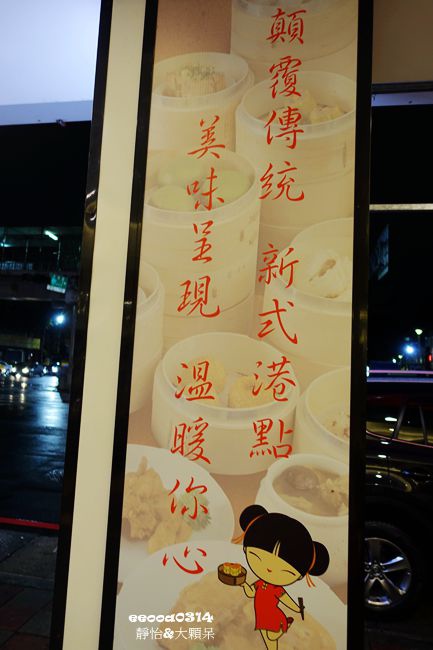 顛覆傳統 新式港點
美味呈現 溫暖你心
eeooa0314
靜怡&大顆呆